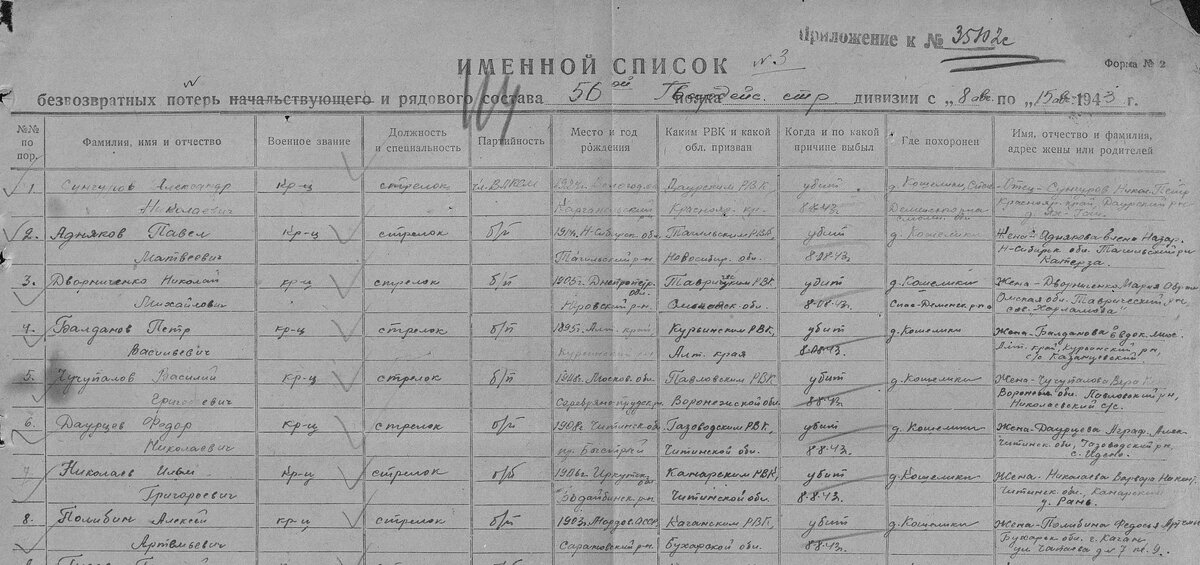 Приложение к № 35102с
ИМЕННОЙ СПИСОК № 3
Форма № 2
безвозвратных потерь начальствующего и рядового состава 56ой Гвардейс. стр. дивизии с „8 авг. по „15 авг. 1943 г.
№№ по пор. Фамилия, имя и отчество Военное звание Должность и специальность Партийность Место и год рождения Каким РВК и какой обл. призван Когда и по какой причине выбыл Где похоронен Имя, отчество и фамилия, адрес жены или родителей
1. Сунгуров Александр кр-ц стрелок чл. ВЛКСМ Даурским РВК, убит д. Кошелики, Отец - Сунгуров Никол. Петр
Николаевич Краснояр. кр. 8.8.43. Краснояр. край, Даурский рн
2. Адняков Павел кр-ц стрелок б/п 1914г. Н-Сибирск. обл. убит д. Кошелики Жена Аднякова Елена Назар.
Матвеевич Новосибир. обл. 8.08.43. Н-Сибирск. обл.
3. Дворниченко Николай кр-ц стрелок б/п 1905г. Днепропетр. обл. Таврическ РВК, убит д. Кошелики Жена - Дворниченко Мария
Михайлович Омской обл. 8.08.43. Спас-Деменск р-на Омская обл. Таврический рн,
4. Балданов Петр кр-ц стрелок б/п Алт. край Курьинским РВК, убит д. Кошелики Жена - Балданова Евдок.
Васильевич Курьинский рн Алт. края 8.08.43. Алт. край, Курьинский рн,
с/с Казанцевский
5. Чучупалов Василий кр-ц стрелок б/п 1908г. Москов. обл. Павловским РВК, убит д. Кошелики Жена - Чучупалова Вера
Григорьевич Серебряно-прудск рн Воронежской обл. 8.8.43. Воронеж. обл. Павловский рн,
Николаевский с/с.
6. Даурцев Федор кр-ц стрелок б/п 1908г. Читинск. обл. Газоводским РВК, убит д. Кошелики Жена - Даурцева Аграф.
Николаевич пр. Быстрый Читинской обл. 8.8.43. Читинск. обл., Газоводский рн,
7. Николаев Илья кр-ц стрелок п/б 1906г. Иркутск. обл. Канарским РВК, убит д. Кошелики Жена - Николаева Варвара
Григорьевич Бодайбинск. рн Читинской обл. 8.8.43. Читинск. обл. Канарский
8. Полибин Алексей кр-ц стрелок б/п 1903г. Мордов. АССР Каганским РВК, убит д. Кошелики Жена - Полибина Федосья
Артемьевич Бухарской обл. 8.8.43. Бухарск. обл. г. Каган
ул. Чапаева д. 7 кв. 9.